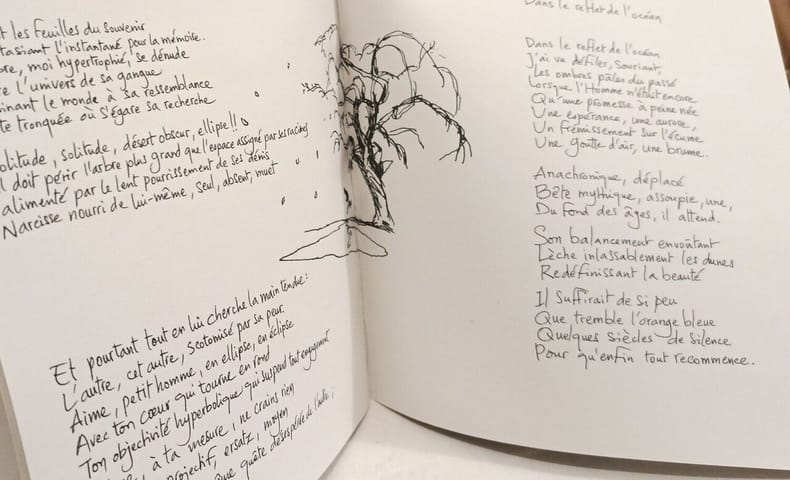 t les feuilles du souvenir
tasiant l'instantané pour la mémoire.
bre, moi hypertrophié, se dénude
re l'univers de sa gangue
inant le monde à sa ressemblance
te tronquée où s'égare sa recherche
olitude, solitude, désert obscur, ellipse!!
l doit périr l'arbre plus grand que l'espace assigné par ses racines
alimenté par le lent pourrissement de ses dénis
Narcisse nourri de lui-même, seul, absent, muet
Et pourtant tout en lui cherche la main tendue:
L'autre, cet autre, scotomisé par sa peur.
Aime, petit homme, en ellipse, en éclipse
Avec ton cœur qui tourne en rond
Ton objectivité hyperbolique qui suspend tout engagement
à ta mesure, ne crains rien
projectif, ersatz, moyen
une quête désespérée de
Dans le reflet de l'océan
Dans le reflet de l'océan
J'ai vu défiler, souriant,
Les ombres pâles du passé
Lorsque l'Homme n'était encore
Qu'une promesse à peine née
Une espérance, une aurore,
Un frémissement sur l'écume
Une goutte d'air, une brume.
Anachronique, déplacé
Bête mythique, assoupie, une,
Du fond des âges, il attend.
Son balancement envoûtant
Lèche inlassablement les dunes
Redéfinissant la beauté
Il suffirait de si peu
Que tremble l'orange bleue
Quelques siècles de silence
Pour qu'enfin tout recommence.